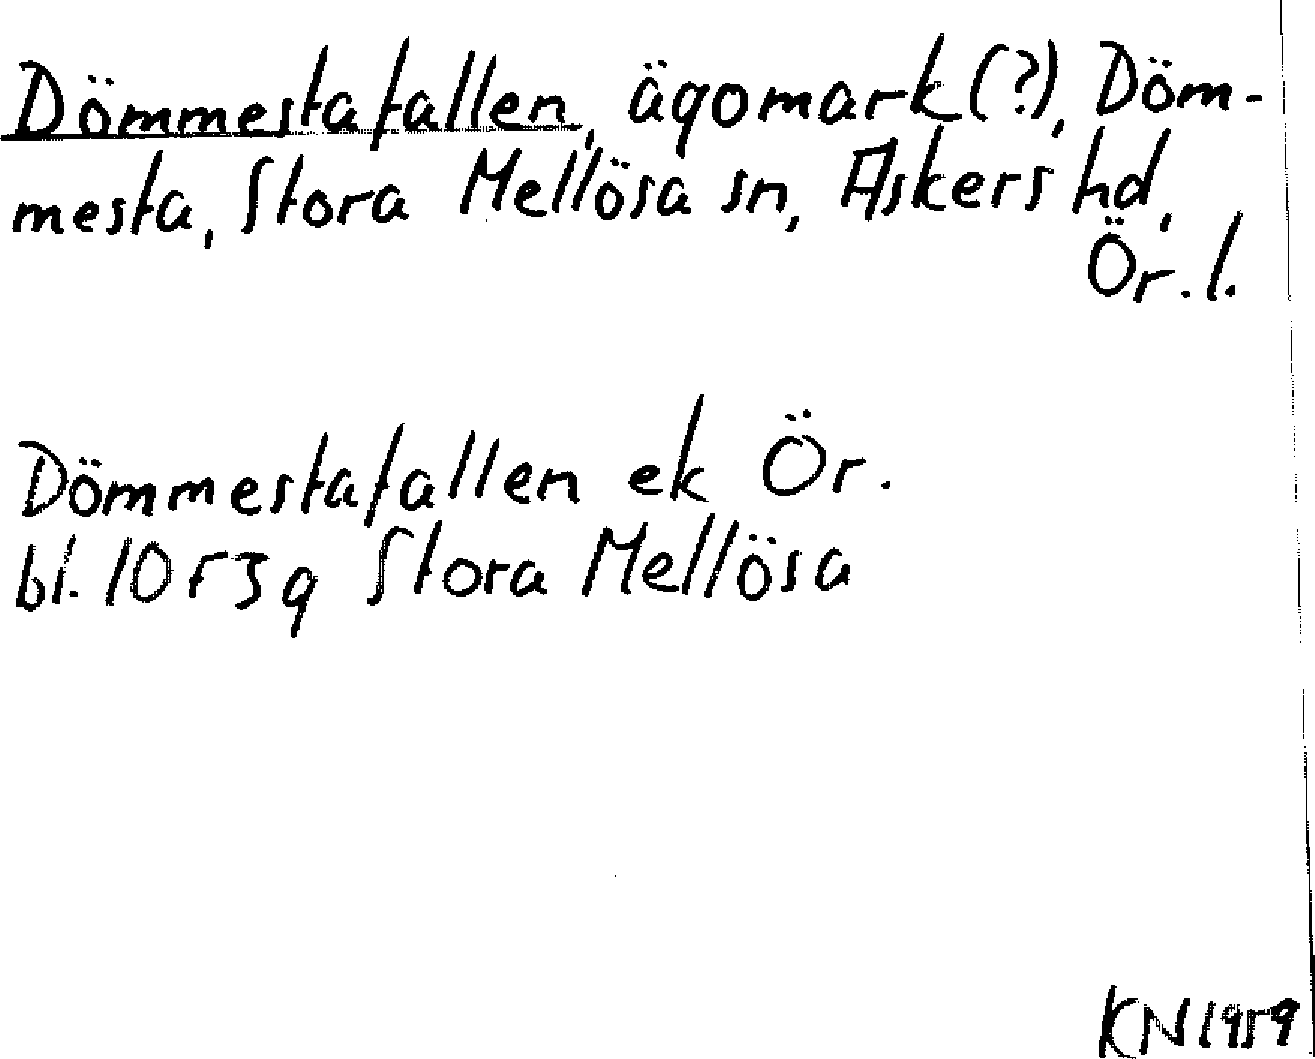 Dömmestafallen, ägomark (?), Döm-
mesta, Stora Mellösa sn, Askers hd,
Ör. l.
Dömmestafallen ek Ör.
bl. 10 F 3 g Stora Mellösa
KN 1959